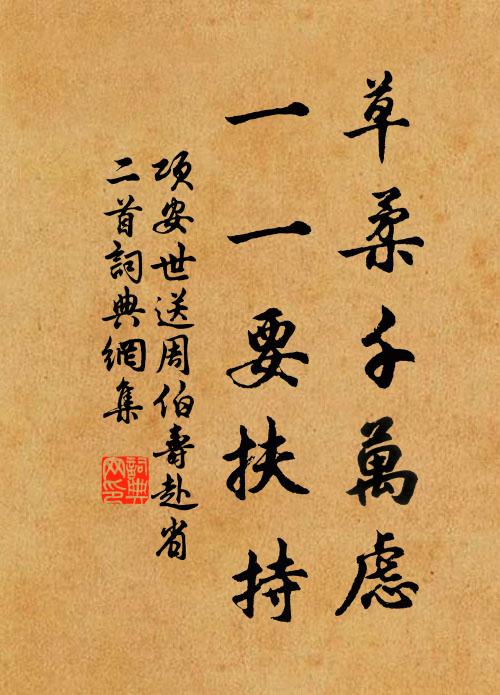 草柔千萬慮
一一要扶持
項安世送周伯壽赴省
二首詞典網集
詞典
网印